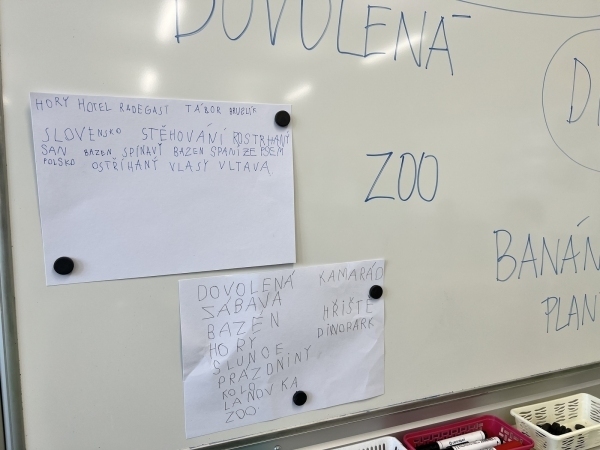 DOVOLENÁ
HORY HOTEL RADEGAST TÁBOR
SLOVENSKO STĚHOVÁNÍ ROSTRHANÝ
SAN BAZEN ŠPINAVÝ BAZEN SPANÍ ZE PSEM
POLSKO OSTŘÍHANÝ VLASY VLTAVA
ZOO
BANÁN
PLAN
DOVOLENÁ KAMARÁD
ZÁBAVA
BAZEN HŘIŠTĚ
HORY DINOPARK
SLUNCE
PRÁZDNINY
KOLO
LANOVKA
ZOO